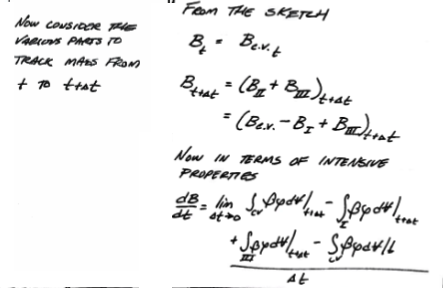 NOW CONSIDER THE
VARIOUS PARTS TO
TRACK MASS FROM
t TO t+Δt
FROM THE SKETCH
B_t = B_{c.v. t}
B_{t+Δt} = (B_{II} + B_{III})_{t+Δt}
= (B_{c.v.} - B_I + B_{III})_{t+Δt}
NOW IN TERMS OF INTENSIVE
PROPERTIES
dB/dt = lim_{Δt→0} ∫_{cv} βρdV|_{t+Δt} - ∫_I βρdV|_{t+Δt}
+ ∫_{III} βρdV|_{t+Δt} - ∫_{cv} βρdV|_t
Δt